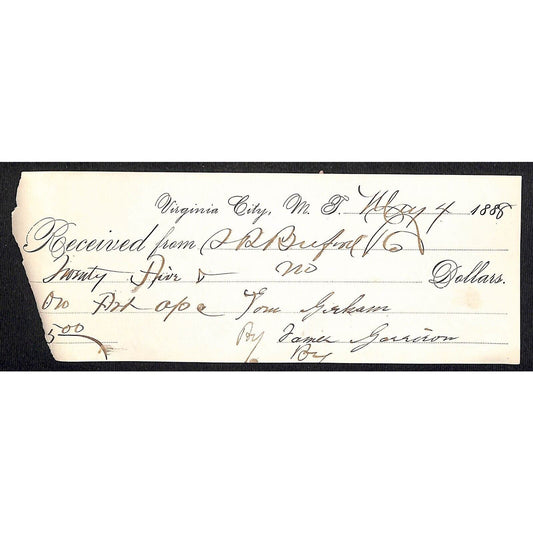 Virginia City, M. T. May 4 1886
Received from S R Buford
Twenty Five & no Dollars.
On Act of Tom Graham
5.00 By James Garrison
By